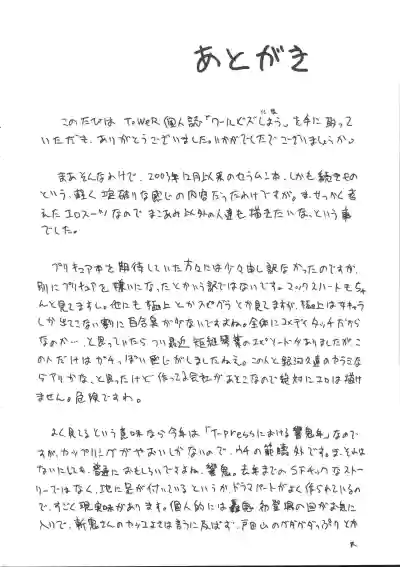 あとがき
このたびは ToWeR 個人誌「クールビズしよう」を手に取って
いただき、ありがとうございました。いかがでしたでございましょうか。
まあそんなわけで、2003年12月以来のセラムン本、しかも続きもの
という、軽く 破りな感じの内容だったわけですが。ま、せっかく考
えたエロスーツなので まこあみ以外の人達も描きたいな、という事
でした。
プリキュア本を期待していた方々には少々申し訳なかったのですが、
別にプリキュアを嫌いになったとかいう訳ではないです。マックスハートもちゃ
んと見てますし。他にも極上とかスピグラとか見てますが、極上はキャラ
しか出てこない割に百合臭が少ないですよね。全体にコメディタッチだから
なのか…、と思っていたら つい最近 のエピソードがありましたが、こ
の人だけはガチっぽい感じがしましたねえ。この人と銀河久遠のカラミな
らアリかな、と思ったけど 作ってる会社があとこなので絶対にエロは描け
ません。危険ですわ。
よく見てるという意味なら今年は「T-pressにおける響鬼年」なので
すが、カップリングがやおいしかないので、ウチの範疇外です。ま、それは
ないにしても、普通におもしろいですよね、響鬼。去年までのSFチックなストー
リーではなく、地に足が付いているというか、ドラマパートがよく作られているの
で、すごく現実味があります。個人的には轟鬼 初登場の回がお気に
入りで、斬鬼さんのカッコよさは言うに及ばず、戸田山の がたっぷりとか